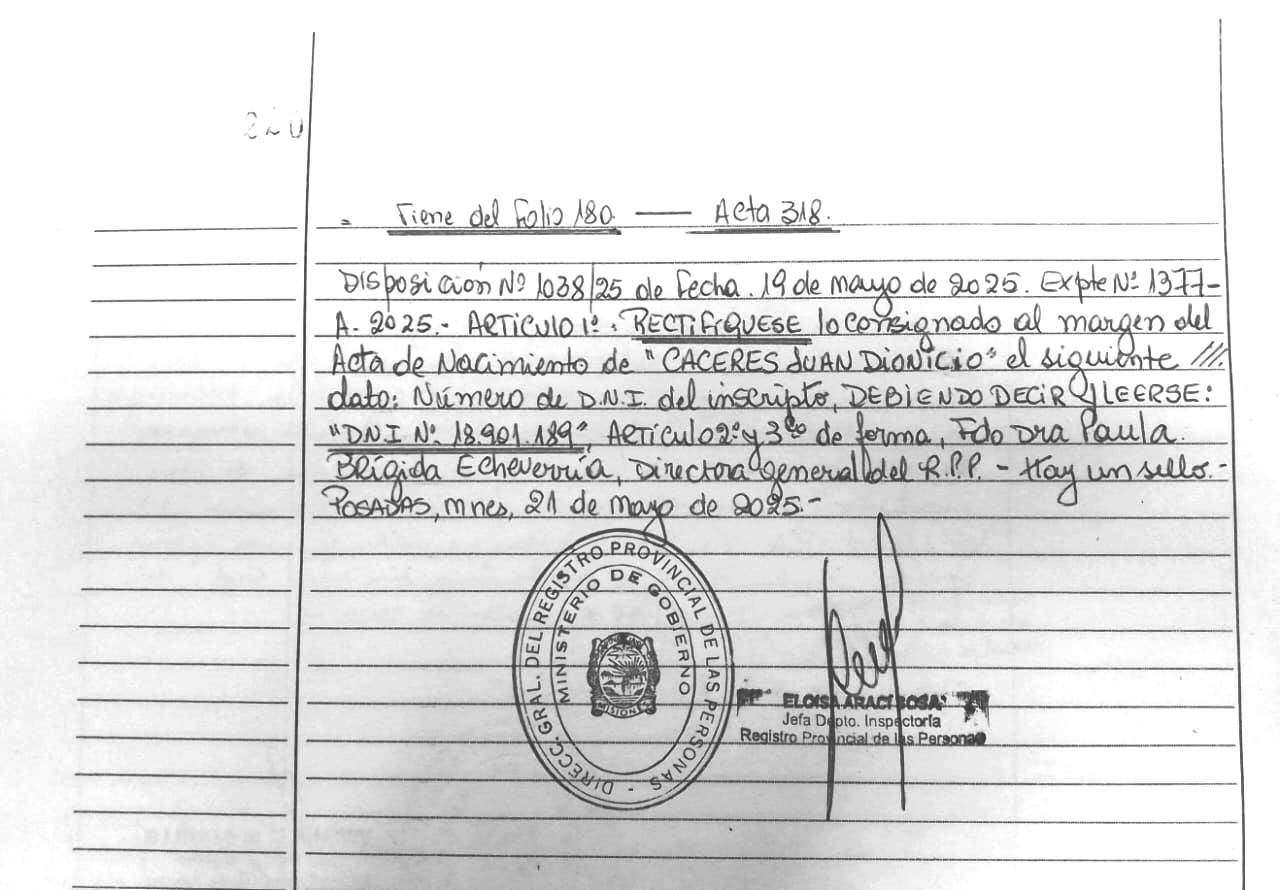 = Viene del Folio 180. — Acta 318.
Disposición Nº 1038/25 de Fecha. 19 de mayo de 2025. Expte Nº 1377-
A. 2025.- ARTÍCULO 1º. RECTIFÍQUESE lo consignado al margen del
Acta de Nacimiento de "CACERES JUAN DIONICIO" el siguiente ///.
dato: Número de D.N.I. del inscripto, DEBIENDO DECIR Y LEERSE:
"DNI Nº 18.901.189", Artículo 2º y 3º de forma, Fdo Dra Paula.
Brígida Echeverría, Directora general del R.P.P. - Hay un sello.-
POSADAS, mnes, 21 de mayo de 2025.-
DIRECC. GRAL. DEL REGISTRO PROVINCIAL DE LAS PERSONAS -
MINISTERIO DE GOBIERNO
MISIONES
ELOISA ARACI SOSA
Jefa Dpto. Inspectoría
Registro Provincial de las Personas